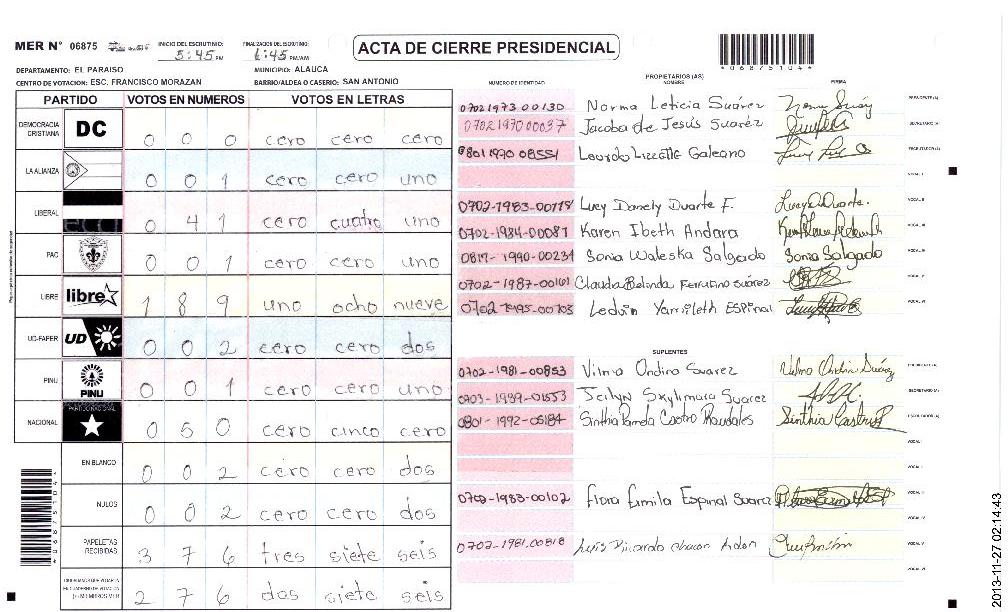 MER N° 06875
INICIO DEL ESCRUTINIO: 5:45 PM
FINALIZACION DEL ESCRUTINIO: 6:45 PM/AM
ACTA DE CIERRE PRESIDENCIAL
*06875104*
DEPARTAMENTO: EL PARAISO
MUNICIPIO: ALAUCA
CENTRO DE VOTACION: ESC. FRANCISCO MORAZAN
BARRIO/ALDEA O CASERIO: SAN ANTONIO
PARTIDO VOTOS EN NUMEROS VOTOS EN LETRAS
DEMOCRACIA CRISTIANA DC 0 0 0 cero cero cero
LA ALIANZA 0 0 1 cero cero uno
LIBERAL 0 4 1 cero cuatro uno
PAC 0 0 1 cero cero uno
LIBRE libre 1 8 9 uno ocho nueve
UD-FAPER UD 0 0 2 cero cero dos
PINU PINU 0 0 1 cero cero uno
NACIONAL PARTIDO NACIONAL 0 5 0 cero cinco cero
EN BLANCO 0 0 2 cero cero dos
NULOS 0 0 2 cero cero dos
PAPELETAS RECIBIDAS 3 7 6 tres siete seis
2 7 6 dos siete seis
NUMERO DE IDENTIDAD
PROPIETARIOS (AS)
NOMBRE
FIRMA
0702 1973 00130 Norma Leticia Suárez PRESIDENTE (A)
0702 1970 00037 Jacoba de Jesús Suaréz SECRETARIO (A)
0801 1970 08551 Lourdes Lizzette Galeano ESCRUTADOR (A)
VOCAL I
0702-1983-00778 Lucy Danely Duarte F. Lucy D. Duarte. VOCAL II
0702-1984-00087 Karen Ibeth Andara VOCAL III
0817-1990-00234 Sonia Waleska Salgado Sonia Salgado VOCAL IV
0702-1987-00161 Claudia Belinda Ferrufino Suárez VOCAL V
0702-1995-00703 Ledvin Yamileth Espinal VOCAL VI
SUPLENTES
0702-1981-00853 Vilma Ondina Suarez PRESIDENTE (A)
0703-1989-01553 Suarez SECRETARIO (A)
0801-1992-05184 Sinthia Pamela Castro Raudales Sinthia Castro R ESCRUTADOR (A)
VOCAL I
VOCAL II
0702-1983-00102 Flora Ermila Espinal Suarez VOCAL III
VOCAL IV
0702-1981-00818 Luis Ricardo Chacon VOCAL V
VOCAL VI
*06875104*
2013-11-27 02:14:43